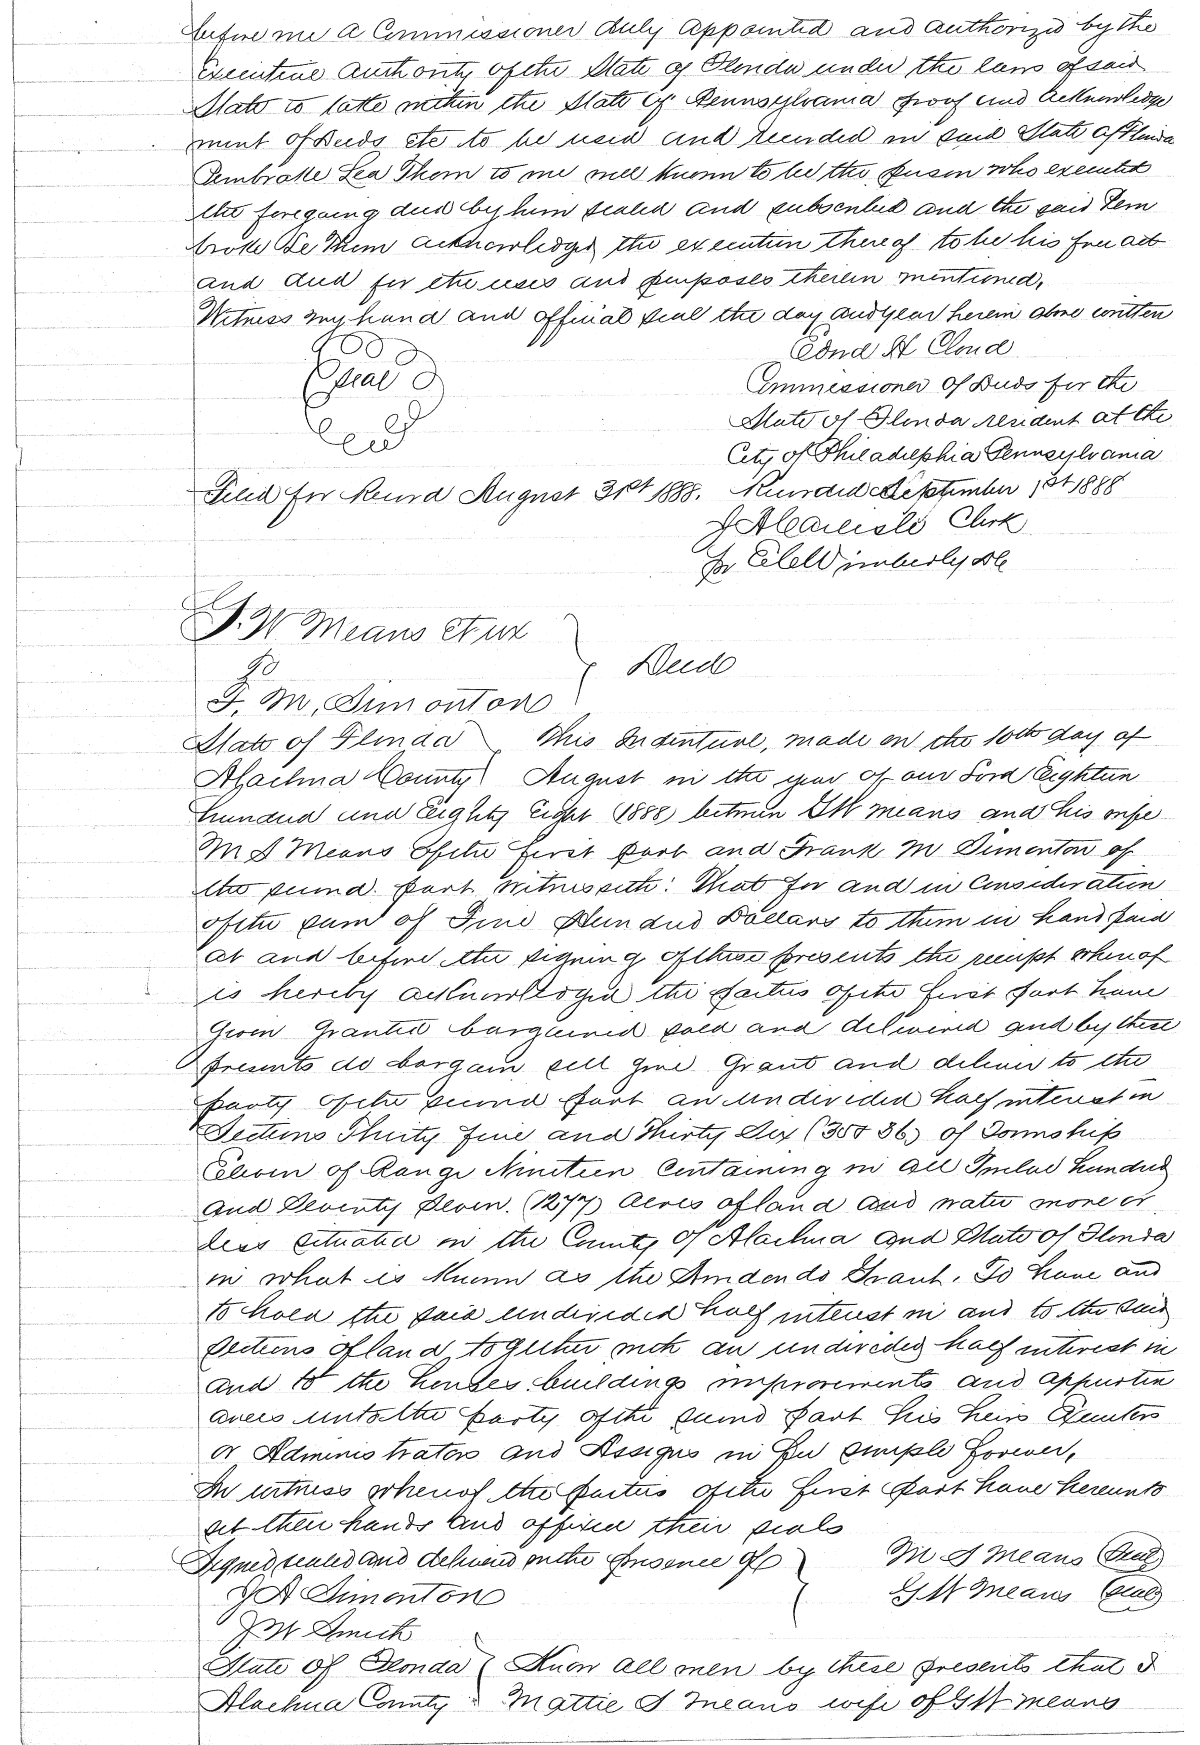 before me a Commissioner duly appointed and authorized by the
Executive authority of the State of Florida under the laws of said
State to take within the State of Pennsylvania proof and acknowledge
ment of Deeds etc to be used and recorded in said State of Florida
Pembroke Lea Thom to me well known to be the person who executed
the foregoing deed by him sealed and subscribed and the said Pem
broke Le Thom acknowledged the execution thereof to be his free act
and deed for the uses and purposes therein mentioned,
Witness my hand and official seal the day and year herein above written
Edmd H Cloud
Seal
Commissioner of Deeds for the
State of Florida resident at the
City of Philadelphia Pennsylvania
Filed for Record August 31st 1888. Recorded September 1st 1888
J A Carlisle Clerk
pr Wimberly DC
G. W Means et ux
To
Deed
F. M. Simonton
State of Florida This Indenture, made on the 10th day of
Alachua County August in the year of our Lord Eighteen
hundred and Eighty Eight (1888) between G W Means and his wife
M S Means of the first part and Frank M Simonton of
the second part Witnesseth: That for and in Consideration
of the sum of Five Hundred Dollars to them in hand paid
at and before the signing of these presents the receipt whereof
is hereby acknowledged the parties of the first part have
Given Granted bargained sold and delivered and by these
presents do bargain sell give Grant and deliver to the
party of the second part an undivided half interest in
Sections Thirty five and Thirty Six (35 & 36) of Township
Eleven of Range Nineteen Containing in all Twelve hundred
and Seventy Seven (1277) Acres of land and water more or
less situated in the County of Alachua and State of Florida
in what is Known as the Arredondo Grant. To have and
to hold the said undivided half interest in and to the said
sections of land together with an undivided half interest in
and to the houses buildings improvements and appurten
ances unto the party of the second part his heirs Executors
or Administrators and Assigns in fee simple forever,
In witness whereof the parties of the first part have hereunto
set their hands and affixed their seals
Signed sealed and delivered in the presence of M S Means Seal
J A Simonton G W Means Seal
J W Smith
State of Florida Know all men by these presents that I
Alachua County Mattie S Means wife of G W Means